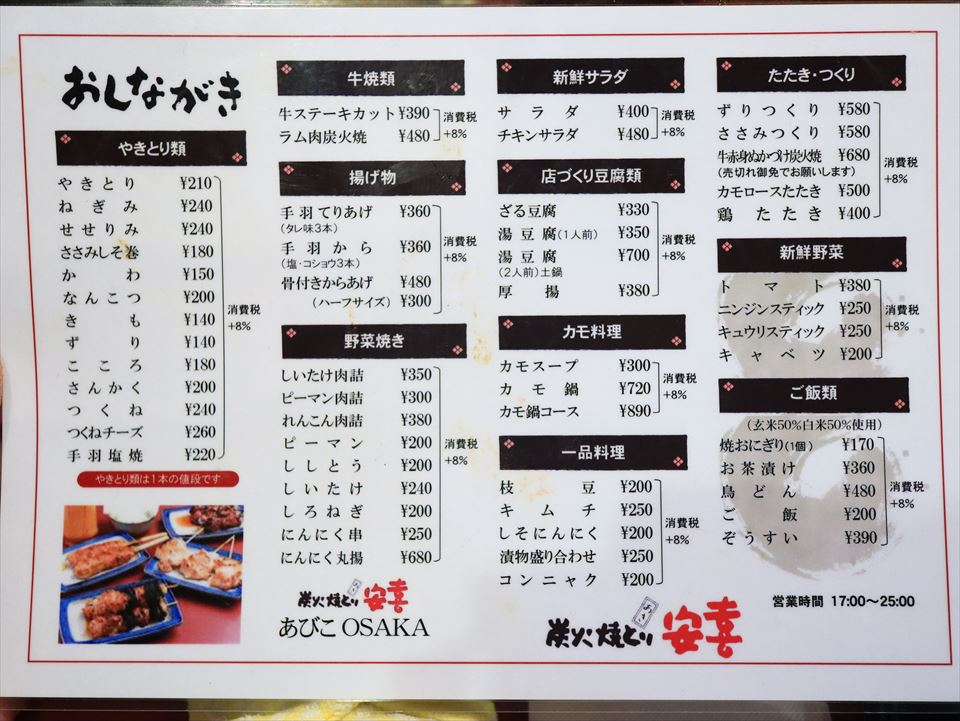 おしながき
やきとり類
やきとり ¥210
ねぎみ ¥240
せせりみ ¥240
ささみしそ巻 ¥180
かわ ¥150
なんこつ ¥200
きも ¥140
ずり ¥140
こころ ¥180
さんかく ¥200
つくね ¥240
つくねチーズ ¥260
手羽塩焼 ¥220
消費税
+8%
やきとり類は1本の値段です
牛焼類
牛ステーキカット ¥390
ラム肉炭火焼 ¥480
消費税
+8%
揚げ物
手羽てりあげ ¥360
(タレ味3本)
手羽から ¥360
(塩・コショウ3本)
骨付きからあげ ¥480
(ハーフサイズ) ¥300
消費税
+8%
野菜焼き
しいたけ肉詰 ¥350
ピーマン肉詰 ¥300
れんこん肉詰 ¥380
ピーマン ¥200
ししとう ¥200
しいたけ ¥240
しろねぎ ¥200
にんにく串 ¥250
にんにく丸揚 ¥680
消費税
+8%
炭火焼とり 安喜
あびこ OSAKA
新鮮サラダ
サラダ ¥400
チキンサラダ ¥480
消費税
+8%
店づくり豆腐類
ざる豆腐 ¥330
湯豆腐(1人前) ¥350
湯豆腐 ¥700
(2人前)土鍋
厚揚 ¥380
消費税
+8%
カモ料理
カモスープ ¥300
カモ鍋 ¥720
カモ鍋コース ¥890
消費税
+8%
一品料理
枝豆 ¥200
キムチ ¥250
しそにんにく ¥200
漬物盛り合わせ ¥250
コンニャク ¥200
消費税
+8%
炭火焼とり 安喜
たたき・つくり
ずりつくり ¥580
ささみつくり ¥580
牛赤身ぬかづけ炭火焼 ¥680
(売切れ御免でお願いします)
カモロースたたき ¥500
鶏たたき ¥400
消費税
+8%
新鮮野菜
トマト ¥380
ニンジンスティック ¥250
キュウリスティック ¥250
キャベツ ¥200
消費税
+8%
ご飯類
(玄米50%白米50%使用)
焼おにぎり(1個) ¥170
お茶漬け ¥360
鳥どん ¥480
ご飯 ¥200
ぞうすい ¥390
消費税
+8%
営業時間 17:00〜25:00